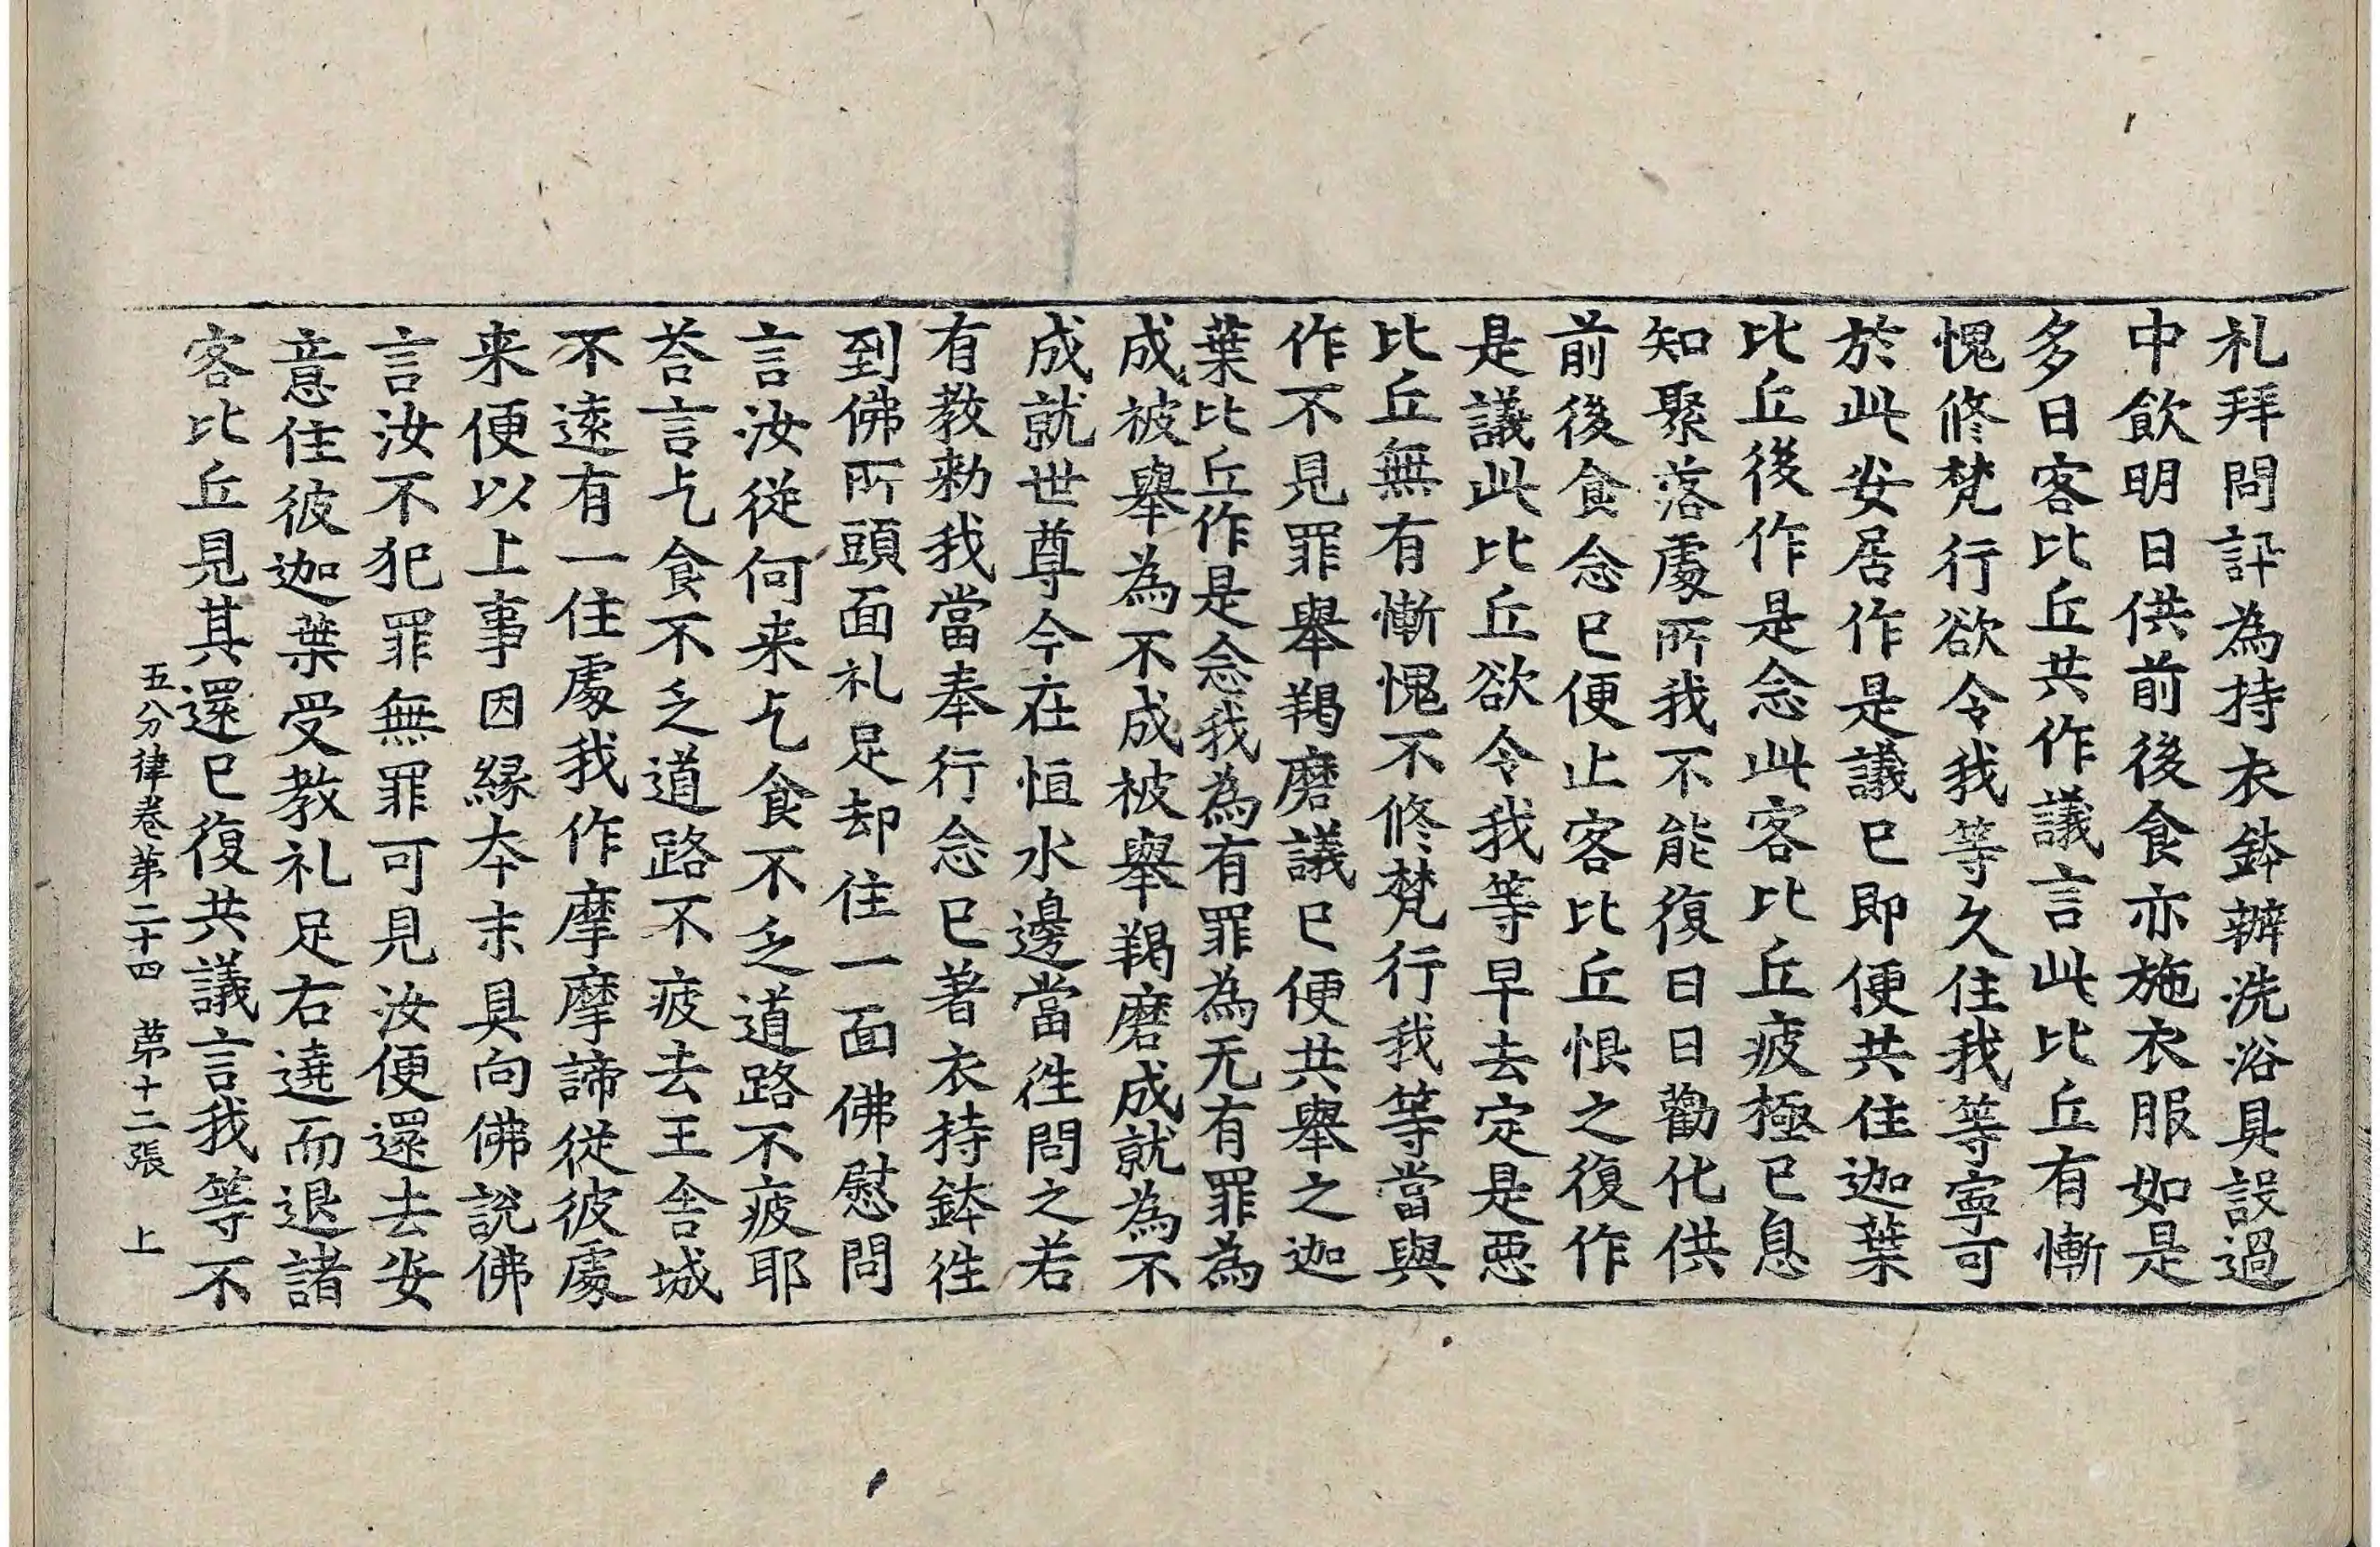 礼拜問訊為持衣鉢辦洗浴具設過
中飲明日供前後食亦施衣服如是
多日客比丘共作議言此比丘有慚
愧修梵行欲令我等久住我等寧可
於此安居作是議已即便共住迦葉
比丘後作是念此客比丘疲極已息
知聚落處所我不能復日日勸化供
前後食念已便止客比丘恨之復作
是議此比丘欲令我等早去定是惡
比丘無有慚愧不修梵行我等當與
作不見罪舉羯磨議已便共舉之迦
葉比丘作是念我為有罪為无有罪為
成被舉為不成被舉羯磨成就為不
成就世尊今在恒水邊當往問之若
有教勑我當奉行念已著衣持鉢往
到佛所頭面礼足却住一面佛慰問
言汝從何来乞食不乏道路不疲耶
荅言乞食不乏道路不疲去王舍城
不遠有一住處我作摩摩諦從彼處
来便以上事因緣本末具向佛說佛
言汝不犯罪無罪可見汝便還去安
意住彼迦葉受教礼足右遶而退諸
客比丘見其還已復共議言我等不
五分律卷第二十四　第十二張　上